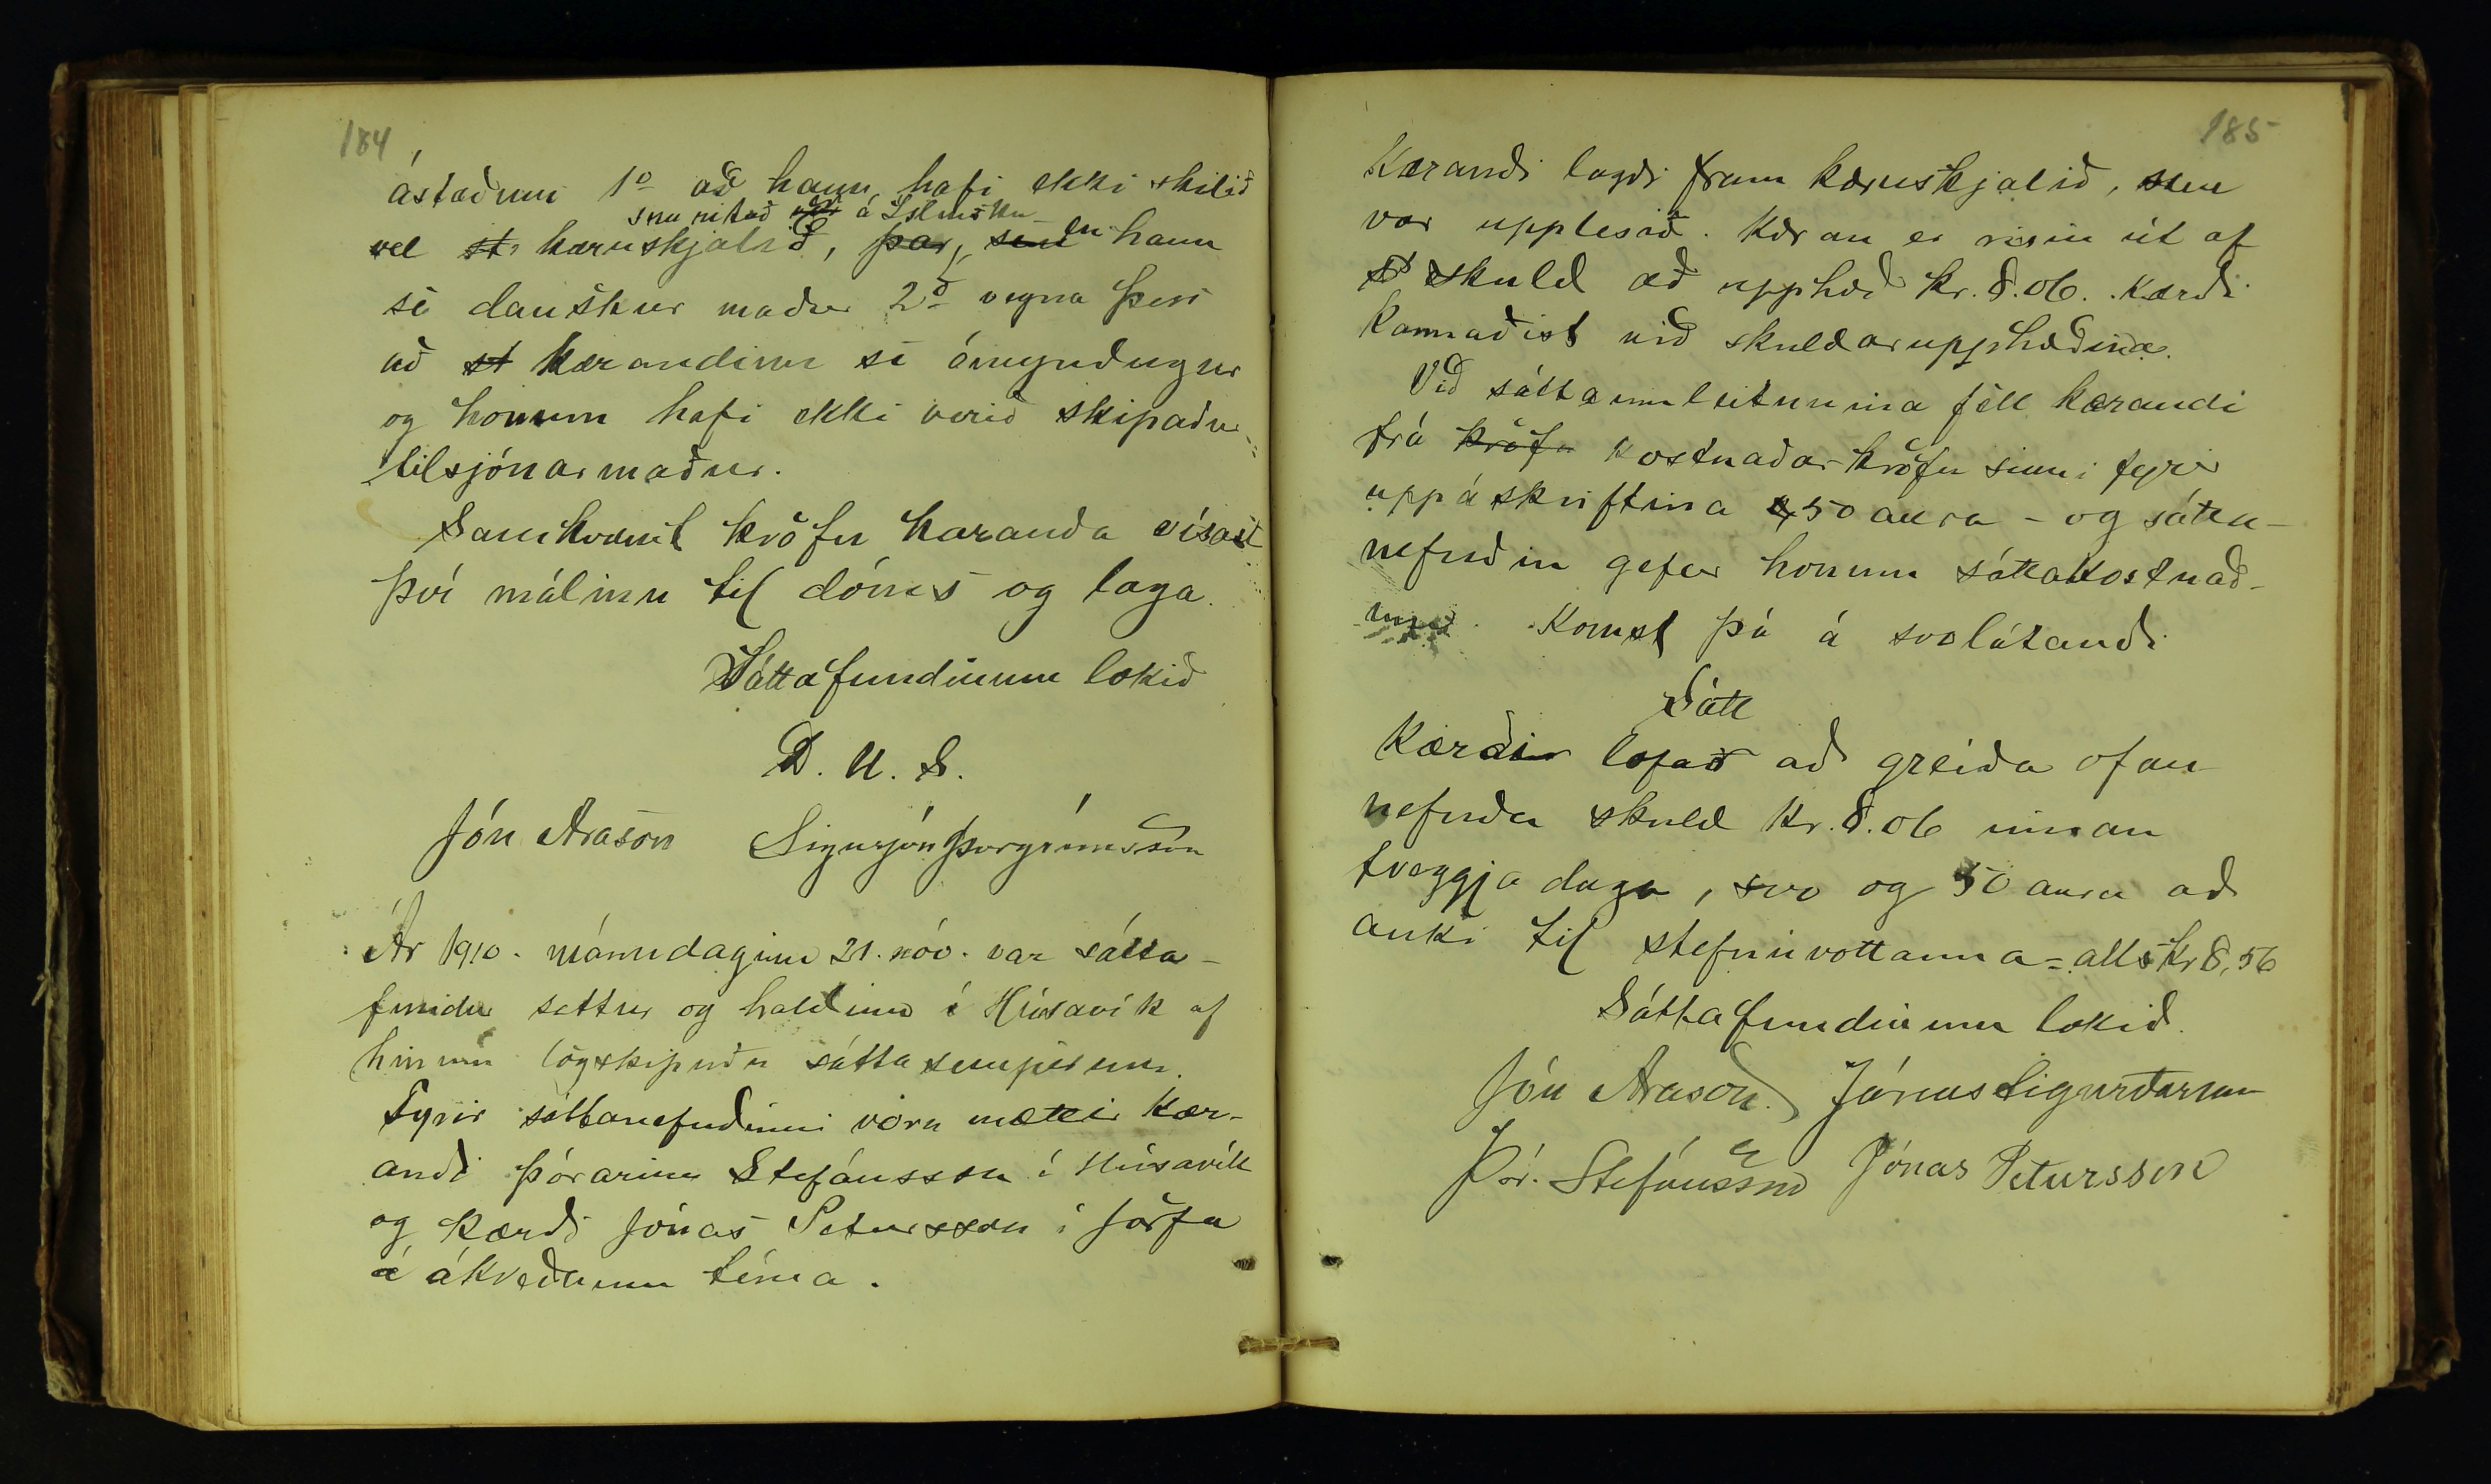 184
ástæðum 1o að hann hafi ekki skilið
sem ritað var á Íslensku
vel st kæruskjalið, þar sem en hann
sé danskur maður 2o vegna þess
að st kærandinn sé ómyndugur
og honum hafi ekki verið skipaður
tilsjónarmaður.
Samkvæmt kröfu kæranda vísast
því málinu til dóms og laga.
Sáttafundinum lokið
D. U. S.
Jón Arason Sigurjón Þorgrímsson
Ár 1910. mánudaginn 21. nóv. var sátta-
fundur settur og haldinn í Húsavík af
hinum lögskipuðu sáttasemjurum.
Fyrir sáttanefndinni voru mættir kær-
andi Þórarinn Stefánsson í Húsavík
og kærði Jónas Petursson í Jörfa
á ákveðnum tíma.
185
Kærandi lagði fram kæruskjalið, sem
var upplesið. Kæran er risin út af
skuld að upphæð kr. 8.06. Kærði
kannaðist við skuldarupphæðina.
Við sáttaumleitunina féll kærandi
frá kröfu kostnaðarkröfu sinni fyrir
uppáskriftina 50 aura - og sátta-
nefndin gefur honum sáttakostnað-
inn. Komst þá á svolátandi
Sátt
Kærði lofar að greiða ofan
nefnda skuld kr. 8.06 innan
tveggja daga, svo og 50 aura að
auki til stefnuvottanna = alls kr 8,56
Sáttafundinum lokið.
Jón Arason. Jónas Sigurðsson
Þór. Stefánsson Jónas Petursson